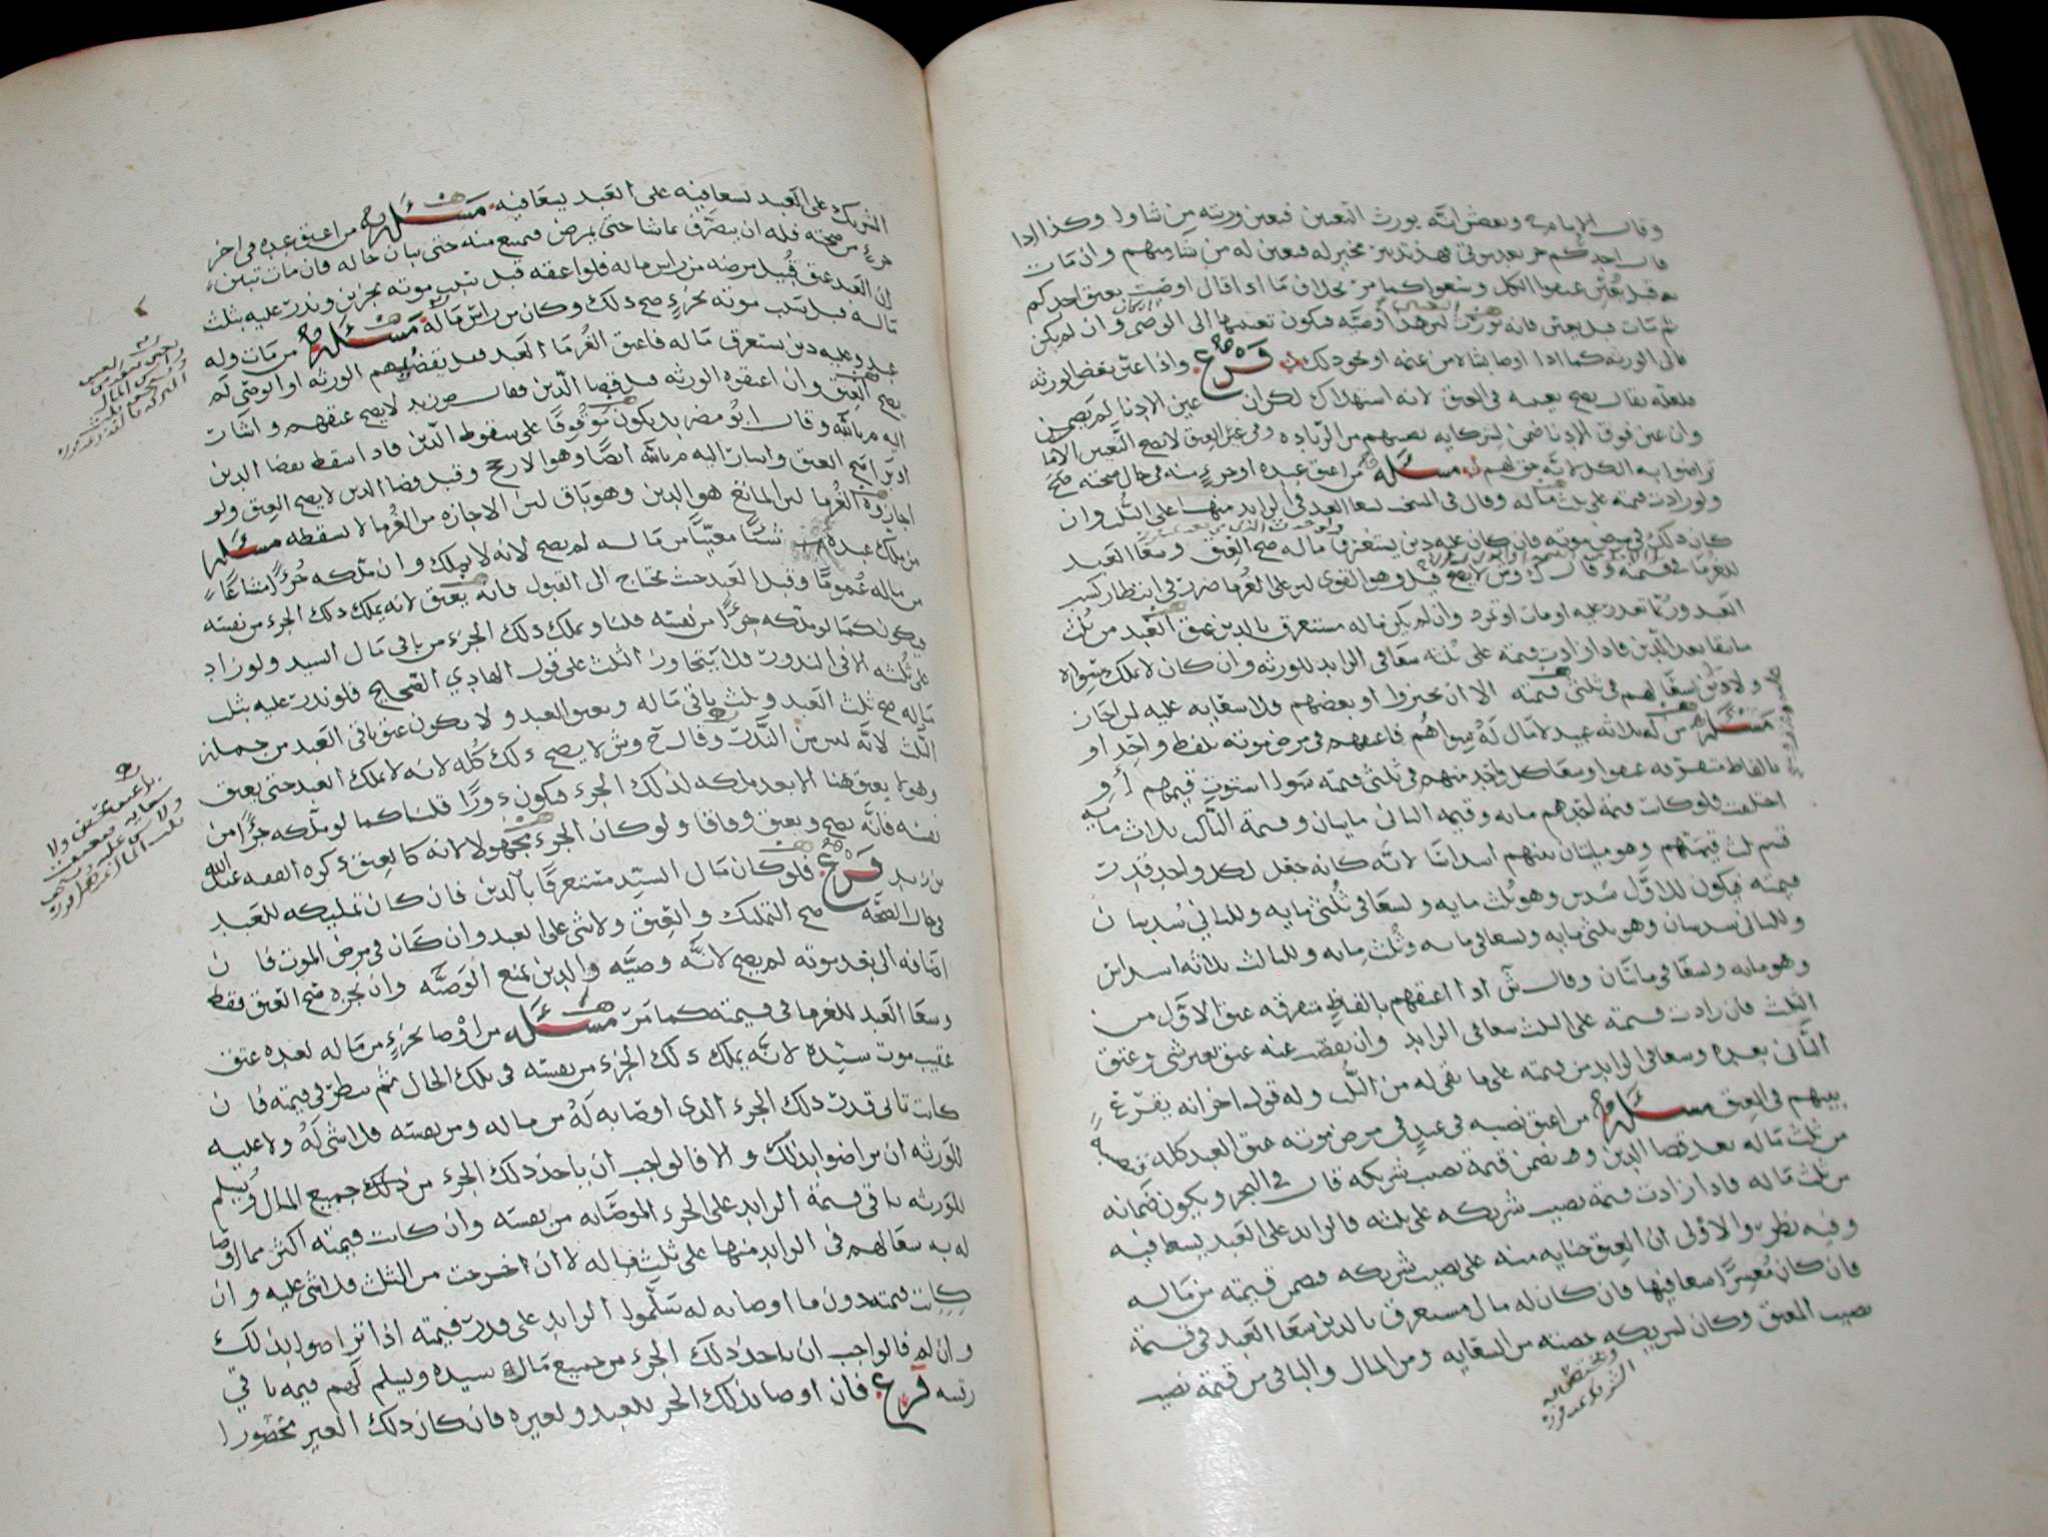 وقال الإمام ي وبعض انه يورث التعيين فيعين ورثته من شاوا وكذا اذا
قال احدكم حر بعد موتي فهذا تدبير مخير له فيعين له من شا منهم وان مات
قبل يعين عتقوا الكل وسعوا كما مر بخلاف ما اذا قال اوصيت بعتق احدكم
ثم مات قبل يعين فانه لان هذا وصيه فيكون تعيينها الى الوصي وان لم يكن
فالى الورثه كما اذا اوصا بشاة من غنمه او نحو ذلك فرع واذا عين بعض الورثه
فلعله يقال يصح تعيينه في العتق لانه استهلاك لكن ان عين الادنا لم يضمن
وان عين فوق الادنا ضمن لشركايه نصيبهم من الزياده وفي غير العتق لا يصح التعيين الا ما
تراضوا به الكل لانه حق لهم مسئله من اعتق عبده او جزء منه في حال صحته صح
ولو زادت قيمته على ثلث ماله وقال في المنتخب يسعا العبد في الزايد منها على الثلث وان
كان ذلك في مرض موته فان كان عليه دين يستغرق ماله صح العتق وسعا العبد
للغرما في قيمته وقال ك وش لا يصح قيل وهو القوي لان على الغرما ضررا في انتظار كسب
العبد وربما تعذر عليه او مات او تمرد وان لم يكن ماله مستغرق بالدين عتق العبد من ثلث
ما بقا بعد الدين فاذا زادت قيمته على ثلثه سعا في الزايد للورثه وان كان لا يملك سواه
ولا دين سعا لهم في ثلثي قيمته الا ان يجيزوا او بعضهم فلا سعايه عليه لمن اجاز
مسئله من له ثلاثه عبيد لا مال له سواهم فاعتقهم في مرض موته بلفظ واحد او
بالفاظ متفرقه عتقوا وسعا كل واحد منهم في ثلثي قيمته سوا استوت قيمهم او
اختلفت فلو كانت قيمة احدهم مايه وقيمة الثاني مايتان وقيمة الثالث ثلاث مايه
قسم ثلث قيمتهم وهو مايتان بينهم اسداسا لانه كانه جعل لكل واحد قدر
قيمته فيكون للاول سدس وهو ثلث مايه ويسعا في ثلثي مايه وللثاني سدسان
وللثاني سدسان وهو ثلثي مايه ويسعا في مايه وثلث مايه وللثالث ثلاثه اسداس
وهو مايه ويسعا في مايتان وقال ش اذا اعتقهم بالفاظ متفرقه عتق الاول من
الثلث فان زادت قيمته على الثلث سعا في الزايد وان نقصت عنه عتق بغير شي وعتق
الثاني بعده وسعا في الزايد من قيمته على ما بقي له من الثلث وله قول اخر انه يقرع
بينهم في العتق مسئله من اعتق نصيبه في عبد في مرض موته عتق العبد كله
من ثلث ماله بعد قضا الدين ويضمن قيمة نصيب شريكه قال في البحر ويكون ضمانه
من ثلث ماله فاذا زادت قيمة نصيب شريكه على ثلثه فالزايد على العبد يسعا فيه
وفيه نظر والاولى ان العتق جنايه منه على نصيب شريكه فيضمن قيمته من ماله
فان كان معسرا سعا فيها فان كان له مال مستغرق بالدين سعا العبد في قيمة
نصيب المعتق وكان لشريكه حصته من السعايه ومن المال والباقي من قيمة نصيب
الشريك على العبد يسعا فيه على العبد يسعا فيه مسئله من اعتق عبده في اخر
جزء من صحته فله ان يتصرف بما شا حتى يمرض فيمنع منه حتى يبان حاله فان مات تبين
ان العبد عتق قبيل مرضه من راس ماله فلو اعتقه قبل موته بجزين ونذر عليه بثلث
ماله قبل موته بجزء صح ذلك وكان من راس ماله مسئله من مات وله
عبد وعليه دين يستغرق ماله فاعتق الغرما العبد قبل يقضيهم الورثه او الوصي لم
يصح العتق وان اعتقوه الورثه قبل قضا الدين فقال ص زيد لا يصح عتقهم واشار
اليه م بالله وقال ابو مضر بل يكون موقوفا على سقوط الدين فاذا اسقط بقضا الدين
او بابرا صح العتق واشار اليه م بالله ايضا وهو الارجح وقيل قضا الدين لا يصح العتق ولو
اجازوه الغرما لان المانع هو الدين وهو باق لان الاجازه من الغرما لا تسقطه مسئله
من ملك عبده شيئا معينا من ماله لم يصح لانه لا يملك وان ملكه جزءا مشاعا
من ماله عموما وقبل العبد حيث يحتاج الى القبول فانه يعتق لانه يملك ذلك الجزء من نفسه
ويكون كما لو ملكه جزءا من نفسه قلنا ويملك ذلك الجزء من باقي مال السيد ولو زاد
على ثلثه الا في النذور فلا يتجاوز الثلث على قول الهادي الصحيح فلو نذر عليه بثلث
ماله صح ثلث العبد وثلث باقي ماله ويعتق العبد ولا يكون عتق باقي العبد من جملة
الثلث لانه ليس من النذر وقال ح وش لا يصح ذلك كله لانه لا يملك العبد حتى يعتق
وهو لا يعتق هنا الا بعد ملكه لذلك الجزء فيكون دورا قلنا كما لو ملكه جزءا من
نفسه فانه يصح ويعتق وفاقا ولو كان الجزء مجهولا لانه كالعتق ذكره الفقيه عبدالله
بن زيد فرع فلو كان مال السيد مستغرقا بالدين فان كان تمليكه للعبد
في حال الصحه صح التمليك والعتق ولا شي على العبد وان كان في مرض الموت فان
اضافه الى بعد موته لم يصح لانه وصيه والدين يمنع الوصيه وان نجزه صح العتق فقط
وسعا العبد للغرما في قيمته كما مر مسئله من اوصا بجزء من ماله لعبده عتق
عقيب موت سيده لانه يملك ذلك الجزء من نفسه في تلك الحال ثم ينظر في قيمته فان
كانت تاتي قدر ذلك الجزء الذي اوصا به له من ماله ومن نفسه فلا شي له ولا عليه
للورثه ان تراضوا بذلك والا فالواجب ان ياخذ ذلك الجزء من ذلك جميع المال ويسلم
للورثه باقي قيمة الزايد على الجزء الموصا به من نفسه وان كانت قيمته اكثر مما اوصا
له به سعا لهم في الزايد منها على ثلث ماله لا ان خرجت من الثلث فلا شي عليه وان
كانت قيمته دون ما اوصا به له سلموا الزايد على قدر قيمته اذا تراضوا بذلك
وان لم فالواجب ان ياخذ ذلك الجزء من جميع مال سيده ويسلم لهم قيمة باقي
رقبته فرع فان اوصا بذلك الجزء للعبد ولغيره فان كان ذلك الغير محصورا